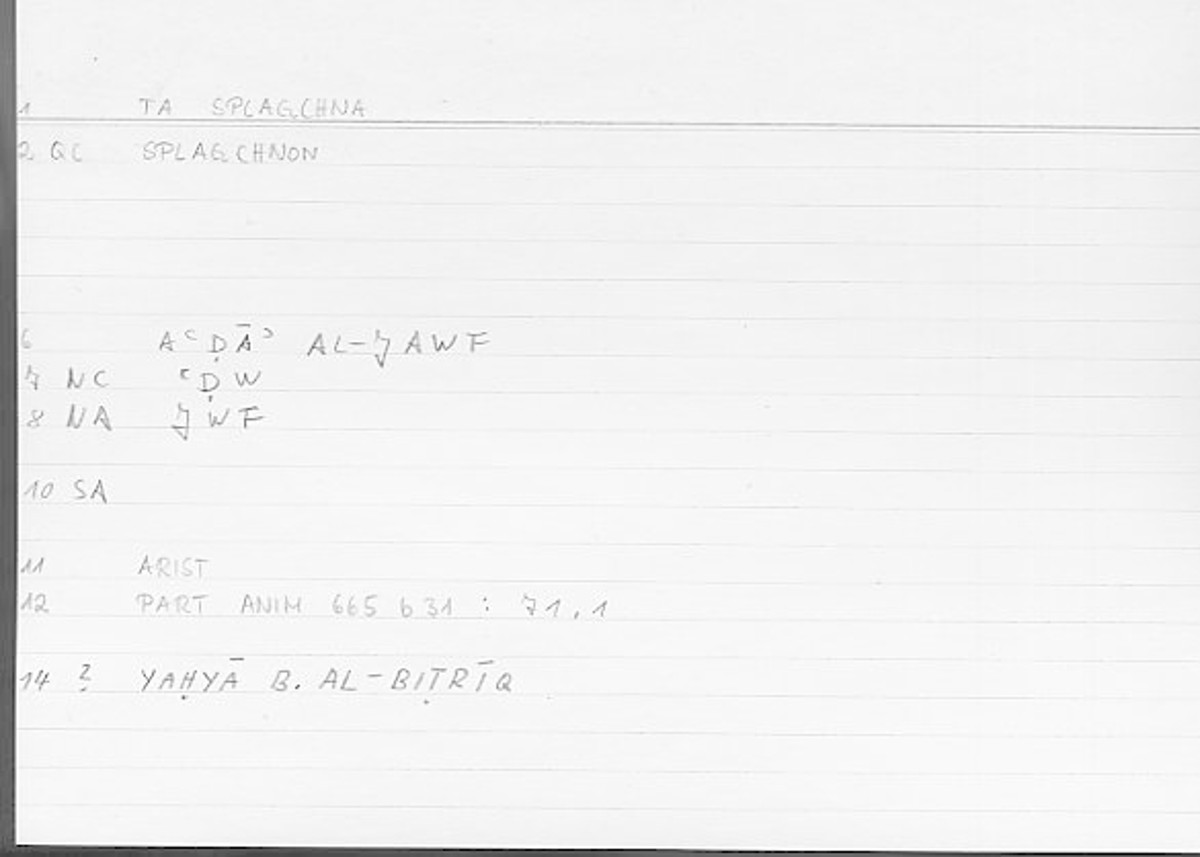 1 TA SPLAGCHNA
2 QC SPLAGCHNON
6 AʿḌĀʾ AL-JAWF
7 NC ʿḌW
8 NA JWF
10 SA
11 ARIST
12 PART ANIM 665 b 31 : 71,1
14 ? YAḤYĀ B. AL-BIṬRĪQ